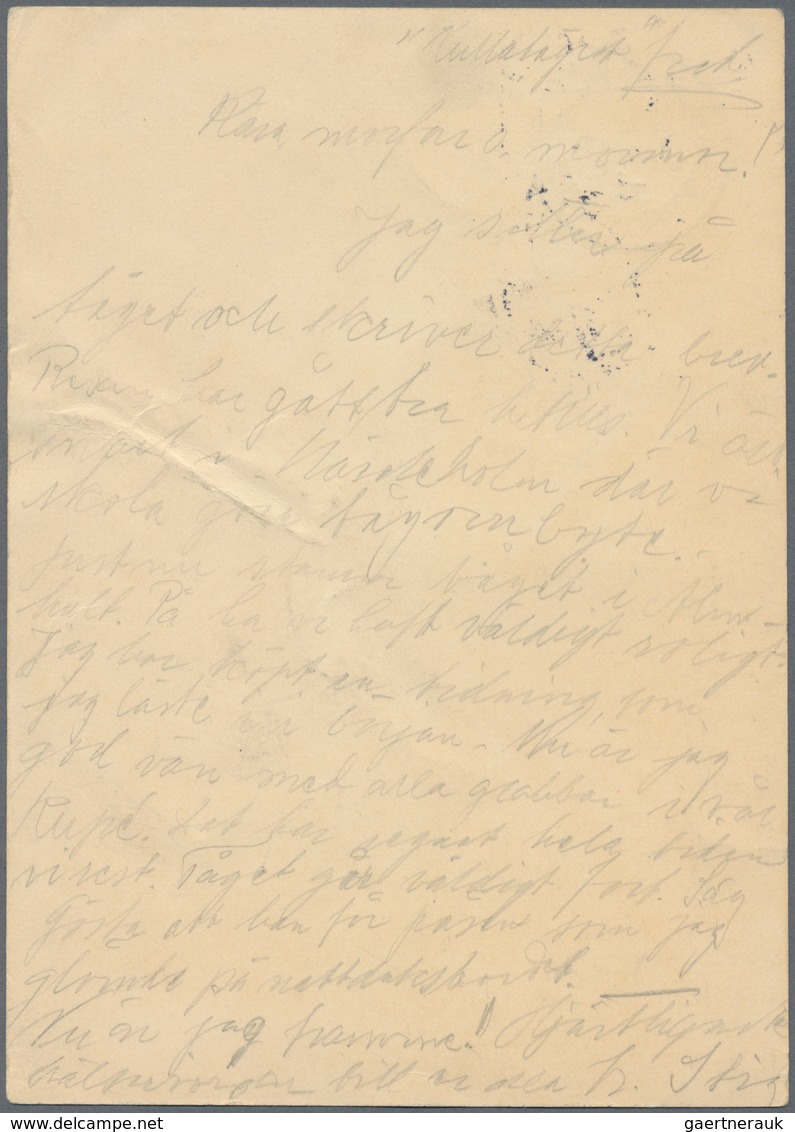 "Kullalägret" fred.
Kära morfar o. mormor!
Jag sitter på
tåget och skriver detta brev.
Resan har gått bra hittills. Vi äro
snart i där vi
skola göra tågombyte.
Just nu stannar tåget i Alm-
hult. På ha vi haft väldigt roligt.
Jag har köpt en tidning som
jag läste i början. Nu är jag
god vän med alla grabbar i vår
Kupé. Det har regnat hela tiden
visst. Tåget går väldigt fort. Säg
Gösta att han får påsen som jag
glömde på nattduksbordet.
Nu är jag framme! Hjärtligaste
hälsningar till er alla fr. Stig
gaertnerauk